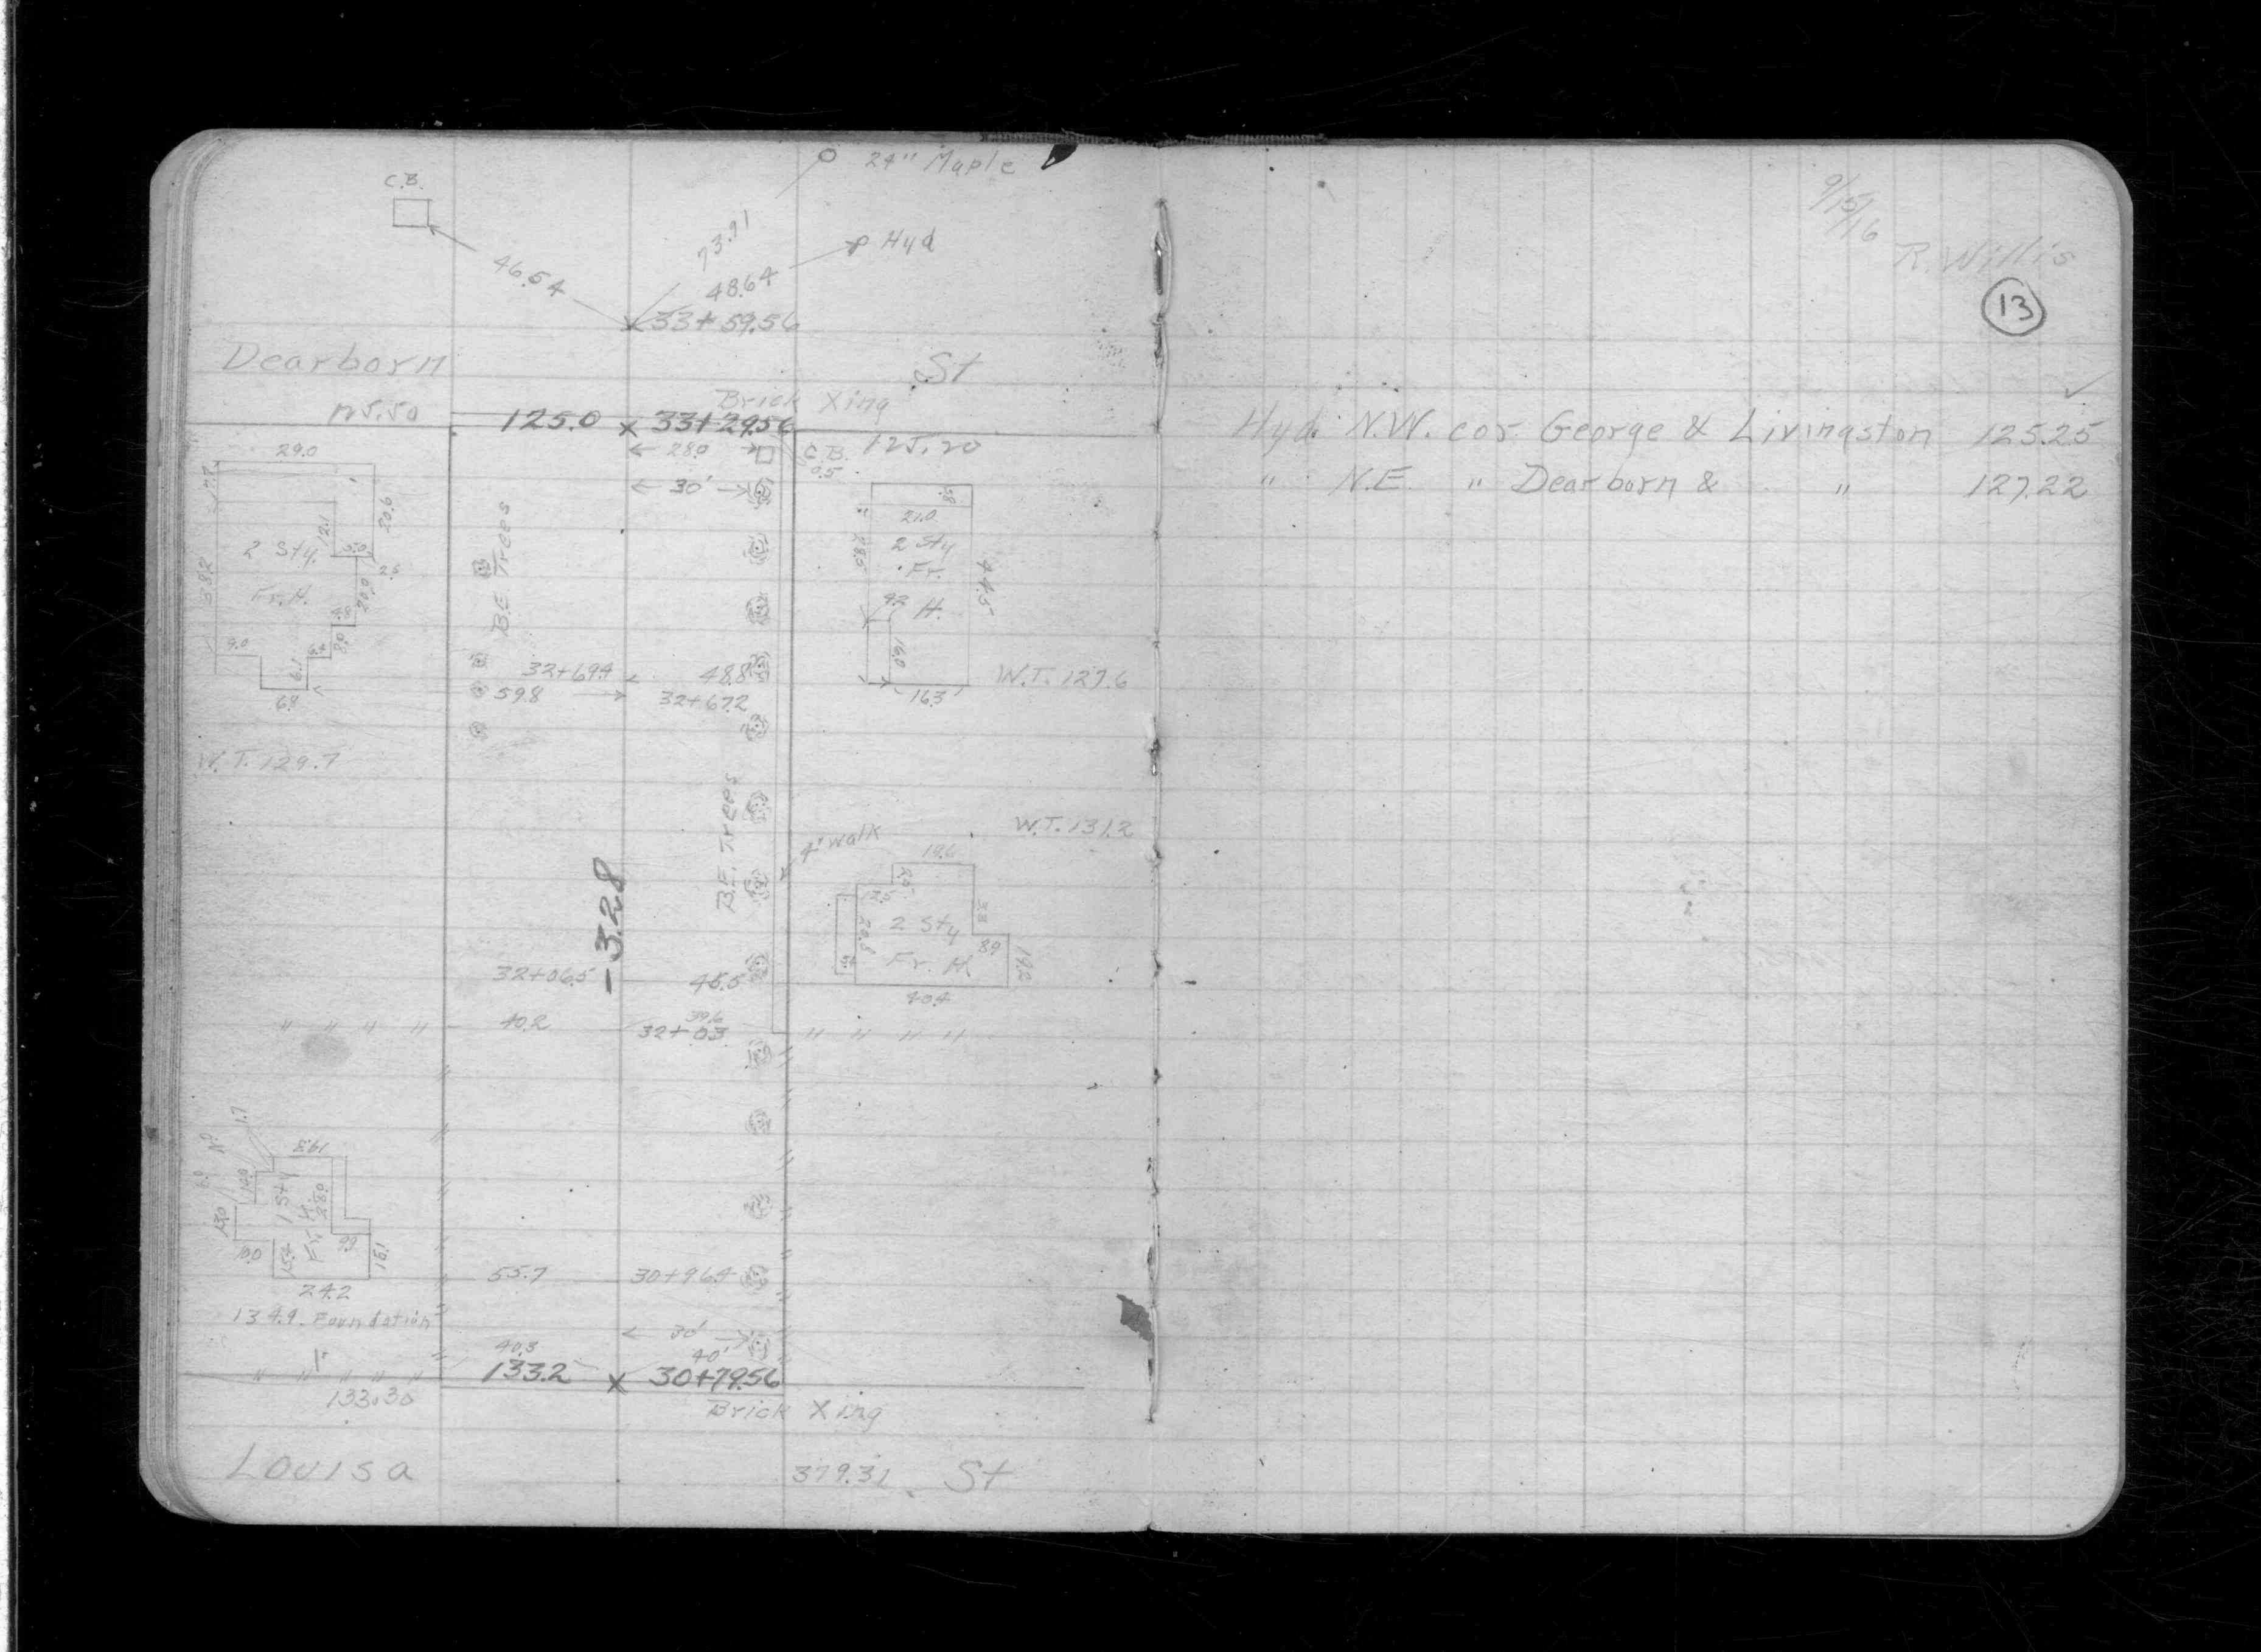 24" Maple
C.B.
73.91
Hyd
46.54
48.64
33+59.56
Dearborn St
Brick Xing
125.0 x 33+29.56
28.0
C.B. 125.20
0.5
30'
29.0
7.7
20.6
12.1
2 Sty.
Fr. H.
20.9
8.0
9.0
6.1
B.E. Trees
5.8
21.0
2 Sty
Fr.
H.
28.5
44.5
4.2
16.0
16.3
W.T. 127.6
32+69.4 48.8
59.8 32+67.2
W.T. 129.7
B.E. Trees
4' walk
W.T. 131.2
19.6
2 Sty
Fr. H
20.8
8.9
19.2
40.4
-3.28
32+06.5 45.5
39.6
" " " " 40.2 32+03 " " " "
1.7
19.3
1 Sty
Fr. H.
28.0
13.0
10.0
15.4
9.9
16.1
24.2
134.9. Foundation
55.7 30+96.4
30'
40.3 40'
" " " " " 133.2 x 30+79.56
133.30
Brick Xing
Louisa 379.31 St
9/15/16
R. Willis
13
Hyd. N.W. cor. George & Livingston 125.25
" N.E. " Dearborn & " 127.22